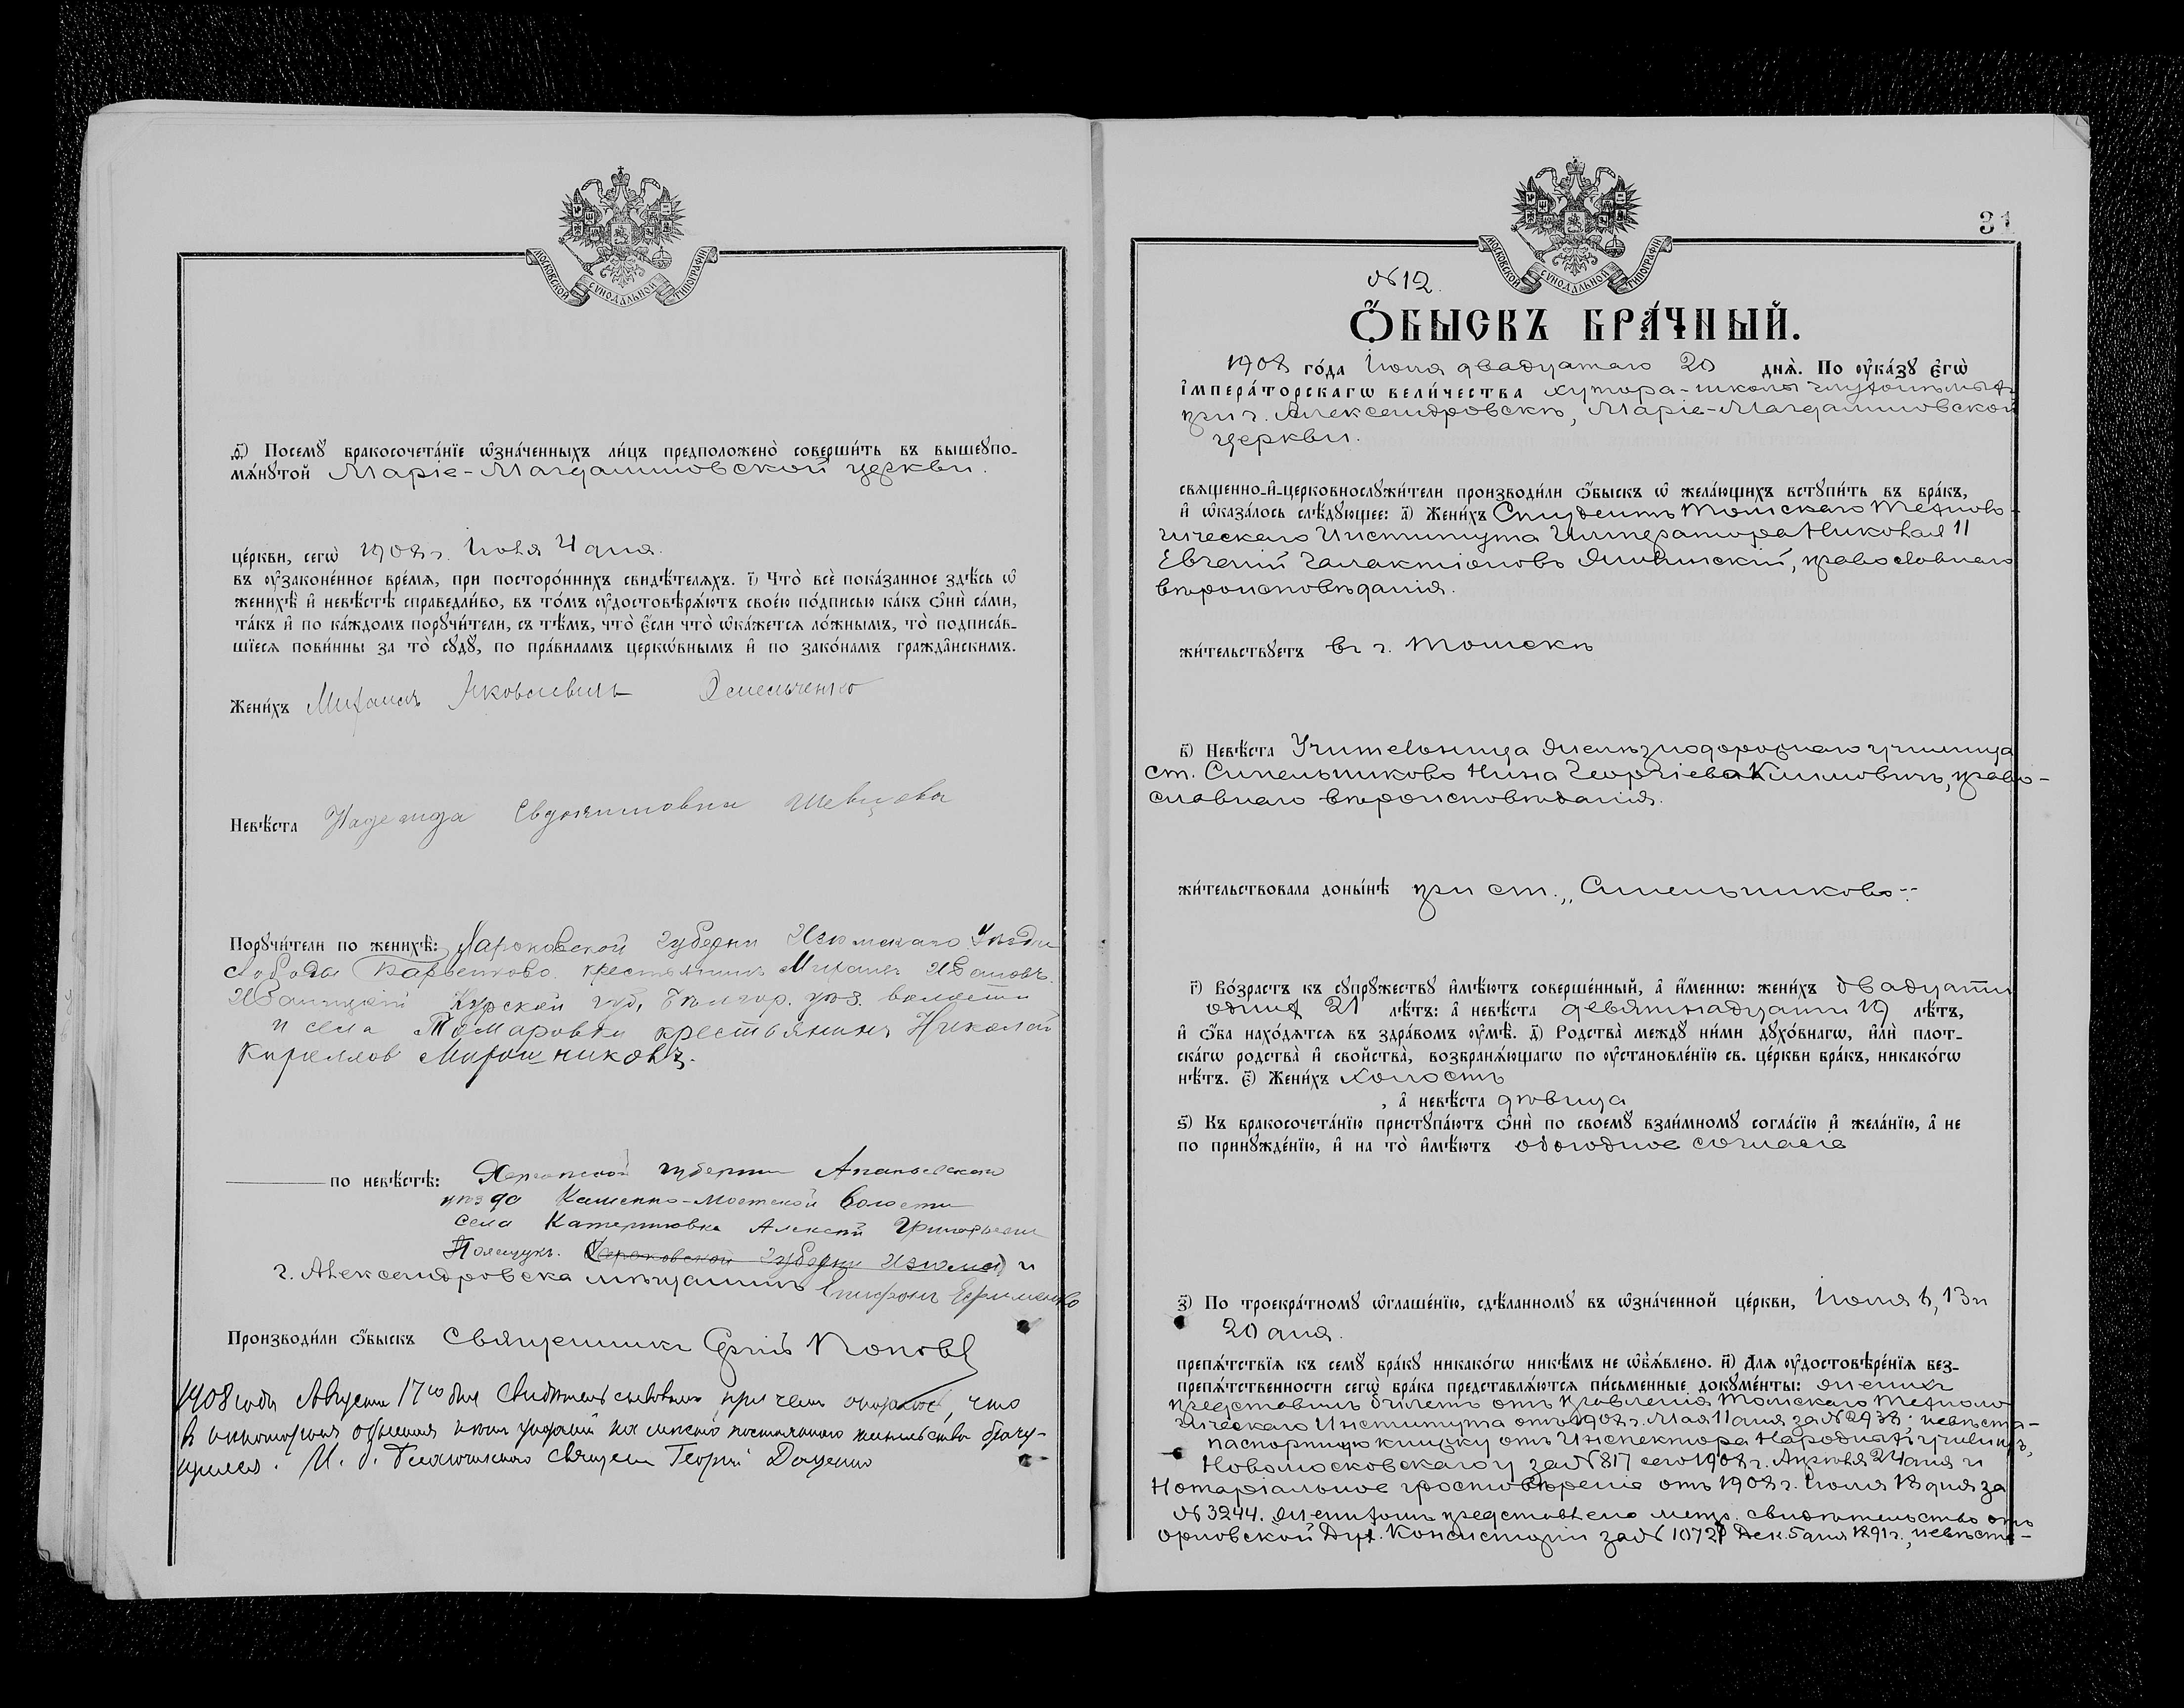 МОСКОВСКОЙ СУНОДАЛЬНОЙ ТИПОГРАФІИ
ѳ҃) Посемꙋ̀ бракосочета́нїе ѡ҆зна́ченныхъ ли́цъ предположено̀ соверши́ть въ вышеꙋпо-
мѧ́нꙋтой Маріе-Магдалиновской церкви.
це́ркви, сегѡ̀ 1908 г. Іюля 4 дня.
въ ᲂу҆законе́нное вре́мѧ, при посторо́ннихъ свидѣ́телѧхъ. і҃) Что̀ всѐ пока́занное здѣ́сь ѡ҆
женихѣ̀ и҆ невѣ́стѣ справедли́во, въ то́мъ ᲂу҆достовѣрѧ́ютъ свое́ю по́дписью ка́къ ѻ҆нѝ са́ми,
та́къ и҆ по ка́ждомъ порꙋчи́тели, съ тѣ́мъ, что̀ є҆́сли что̀ ѡ҆ка́жетсѧ ло́жнымъ, то̀ подписа́в-
шїесѧ пови́нны за то̀ сꙋдꙋ̀, по пра́виламъ церкѡ́внымъ и҆ по зако́намъ гражда̑нскимъ.
Жени́хъ Михаилъ Яковлевичъ Омельченко
Невѣ́ста Надежда Евдокимовна Шевцова
Порꙋчи́тели по женихѣ̀: Харьковской губерни Изюмскаго Уѣзда
слободы Барвенково крестьянинъ Михаилъ Ивановъ
Иваницкій Курской губ, Бѣлгор. уѣз. волости
и села Томаровки крестьянинъ Николай
Кирелловъ Мирошниковъ.
по невѣ́стѣ: Херсонской губерніи Ананьевскаго
уѣзда Каменно-Мостской волости
села Катериновка Алексѣй Григорьевъ
Полещукъ. Харьковской губерни Изюмс и
г. Александровска мѣщанинъ Епифонъ Ефименко
Производи́ли ѻ҆́быскъ Священникъ Попов
1908 года Августа 17го дня Свидѣтельствовалъ, при чемъ, что
постояннаго жительства брачу-
щихся. И. д. Благочиннаго Священ Георгій Доценко
31
МОСКОВСКОЙ СУНОДАЛЬНОЙ ТИПОГРАФІИ
№ 12.
Ѻ҆́БЫСКЪ БРА́ЧНЫЙ.
1908 го́да Іюля двадцатаго 20 днѧ̀. По ᲂу҆ка́зꙋ є҆гѡ̀
і҆мпера́торскагѡ вели́чества хутора-школы глухонѣмыхъ
при г. Александровскѣ, Маріе-Магдалиновской
церкви.
свѧщенно-и҆-церковнослꙋжи́тели производи́ли ѻ҆́быскъ ѡ҆ жела́ющихъ встꙋпи́ть въ бра́къ,
и҆ ѡ҆каза́лось слѣ́дꙋющее: а҃) Жени́хъ Студентъ Томскаго Техноло-
гическаго Института Императора Николая II
Евгеній Галактіоновъ православнаго
вѣроисповѣданія.
жи́тельствꙋетъ въ г. Томскѣ
в҃) Невѣ́ста Учительница желѣзнодорожнаго училища
ст. Синельниково Нина Георгіева Климовичъ, право-
славнаго вѣроисповѣданія.
жи́тельствовала доны́нѣ при ст. „Синельниково“.
г҃) Во́зрастъ къ сꙋпрꙋ́жествꙋ и҆мѣ́ютъ соверше́нный, а҆ и҆́меннѡ: жени́хъ двадцати
одинъ 21 лѣ́тъ: а҆ невѣ́ста девятнадцати 19 лѣ́тъ,
и҆ ѻ҆́ба нахо́дѧтсѧ въ здра́вомъ ᲂу҆мѣ̀. д҃) Родства̀ междꙋ ни́ми дꙋхо́внагѡ, и҆лѝ плот-
ска́гѡ родства̀ и҆ свойства̀, возбранѧ́ющагѡ по ᲂу҆становле́нїю св. це́ркви бра́къ, никако́гѡ
нѣ́тъ. є҃) Жени́хъ холостъ
, а҆ невѣ́ста дѣвица
ѕ҃) Къ бракосочета́нїю пристꙋпа́ютъ ѻ҆нѝ по своемꙋ̀ взаи́мномꙋ согла́сїю и҆ жела́нїю, а҆ не
по принꙋжде́нїю, и҆ на то̀ и҆мѣ́ютъ обоюдное согласіе
з҃) По троекра́тномꙋ ѡ҆глаше́нїю, сдѣ́ланномꙋ въ ѡ҆зна́ченной це́ркви, Іюля 6, 13 и
20 дня.
препѧ́тствїѧ къ семꙋ̀ бра́кꙋ никако́гѡ никѣ́мъ не ѡ҆б̾ѧ́влено. и҃) Длѧ ᲂу҆достовѣре́нїѧ без-
препѧ́тственности сегѡ̀ бра́ка представлѧ́ютсѧ пи́сьменные докꙋме́нты: женихъ
представилъ билетъ отъ Правленія Томскаго Техноло
гическаго Института отъ 1908 г. Мая 11 дня за № 2938; невѣста-
паспортную книжку отъ Инспектора Народныхъ училищъ,
Новомосковскаго у за № 817 сего 1908 г. Апрѣля 24 дня и
Нотаріальное удостовѣреніе отъ 1908 г. Іюля 18 дня за
№ 3244. Женихомъ представлено метр. свидѣтельство отъ
Орловской Дух. Консисторіи за № 10721 Дек. 5 дня 1891 г., невѣста-